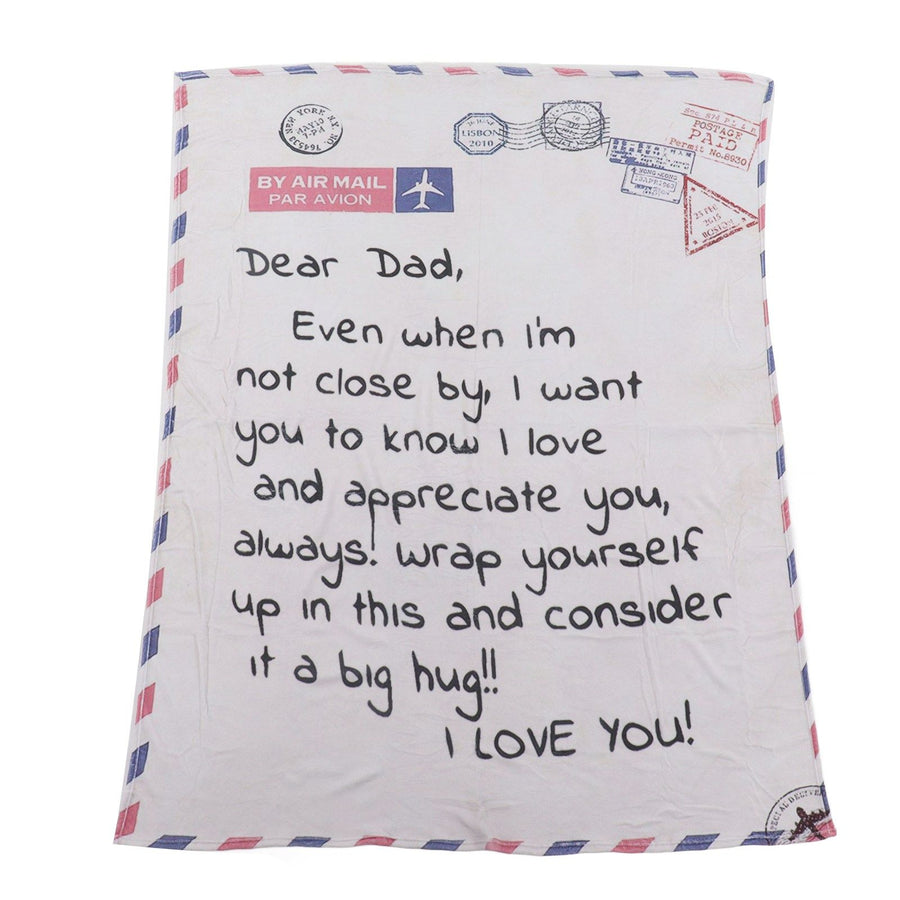 NEW YORK N.Y.
MAY 10
1-PM
LISBON
2010
POSTAGE
PAID
Permit No.8930
HONG-KONG
25 FEB
2015
BOSTON
BY AIR MAIL
PAR AVION
Dear Dad,
Even when I'm
not close by, I want
you to know I love
and appreciate you,
always! wrap yourself
up in this and consider
it a big hug!!
I LOVE YOU!